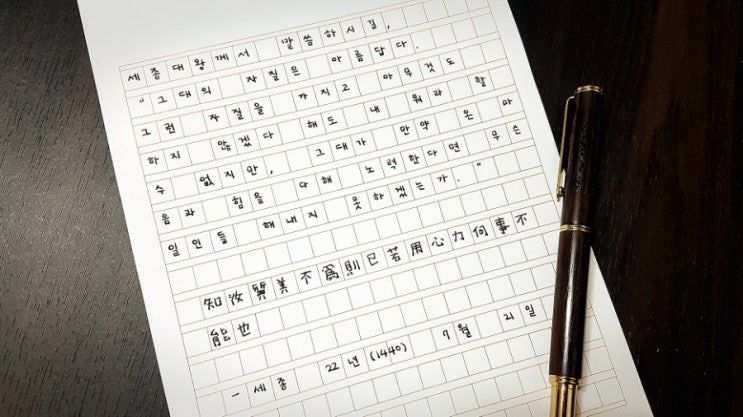 세종대왕께서 말씀하시길,
"그대의 자질은 아름답다.
그런 자질을 가지고 아무것도
하지 않겠다 해도 내 뭐라 할
수 없지만, 그대가 만약 온 마
음과 힘을 다해 노력한다면 무슨
일인들 해내지 못하겠는가."
知汝質美不爲則已若用心力何事不
能也
- 세종 22년(1440) 7월 21일